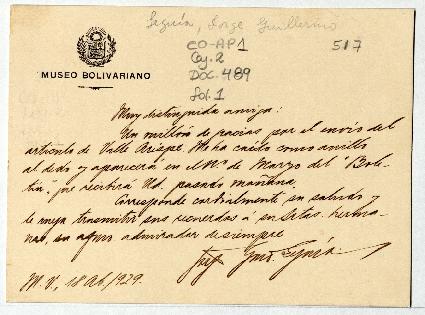 Leguía, Jorge Guillermo
CO-AP1
Cj. 2
Doc. 489
Fol. 1
517
MUSEO BOLIVARIANO
Muy distinguida amiga:
Un millón de gracias por el envío del
artículo de Valle Arizpe. Me ha caído como anillo
al dedo y aparecerá en el Nº de Marzo del "Bole-
tín", que recibirá Ud. pasado mañana.
Corresponde cordialmente su saludo y
le ruega trasmitir sus recuerdos a sus Srtas. herma-
nas, su admirador de siempre
M. V., 18 Ab./929.